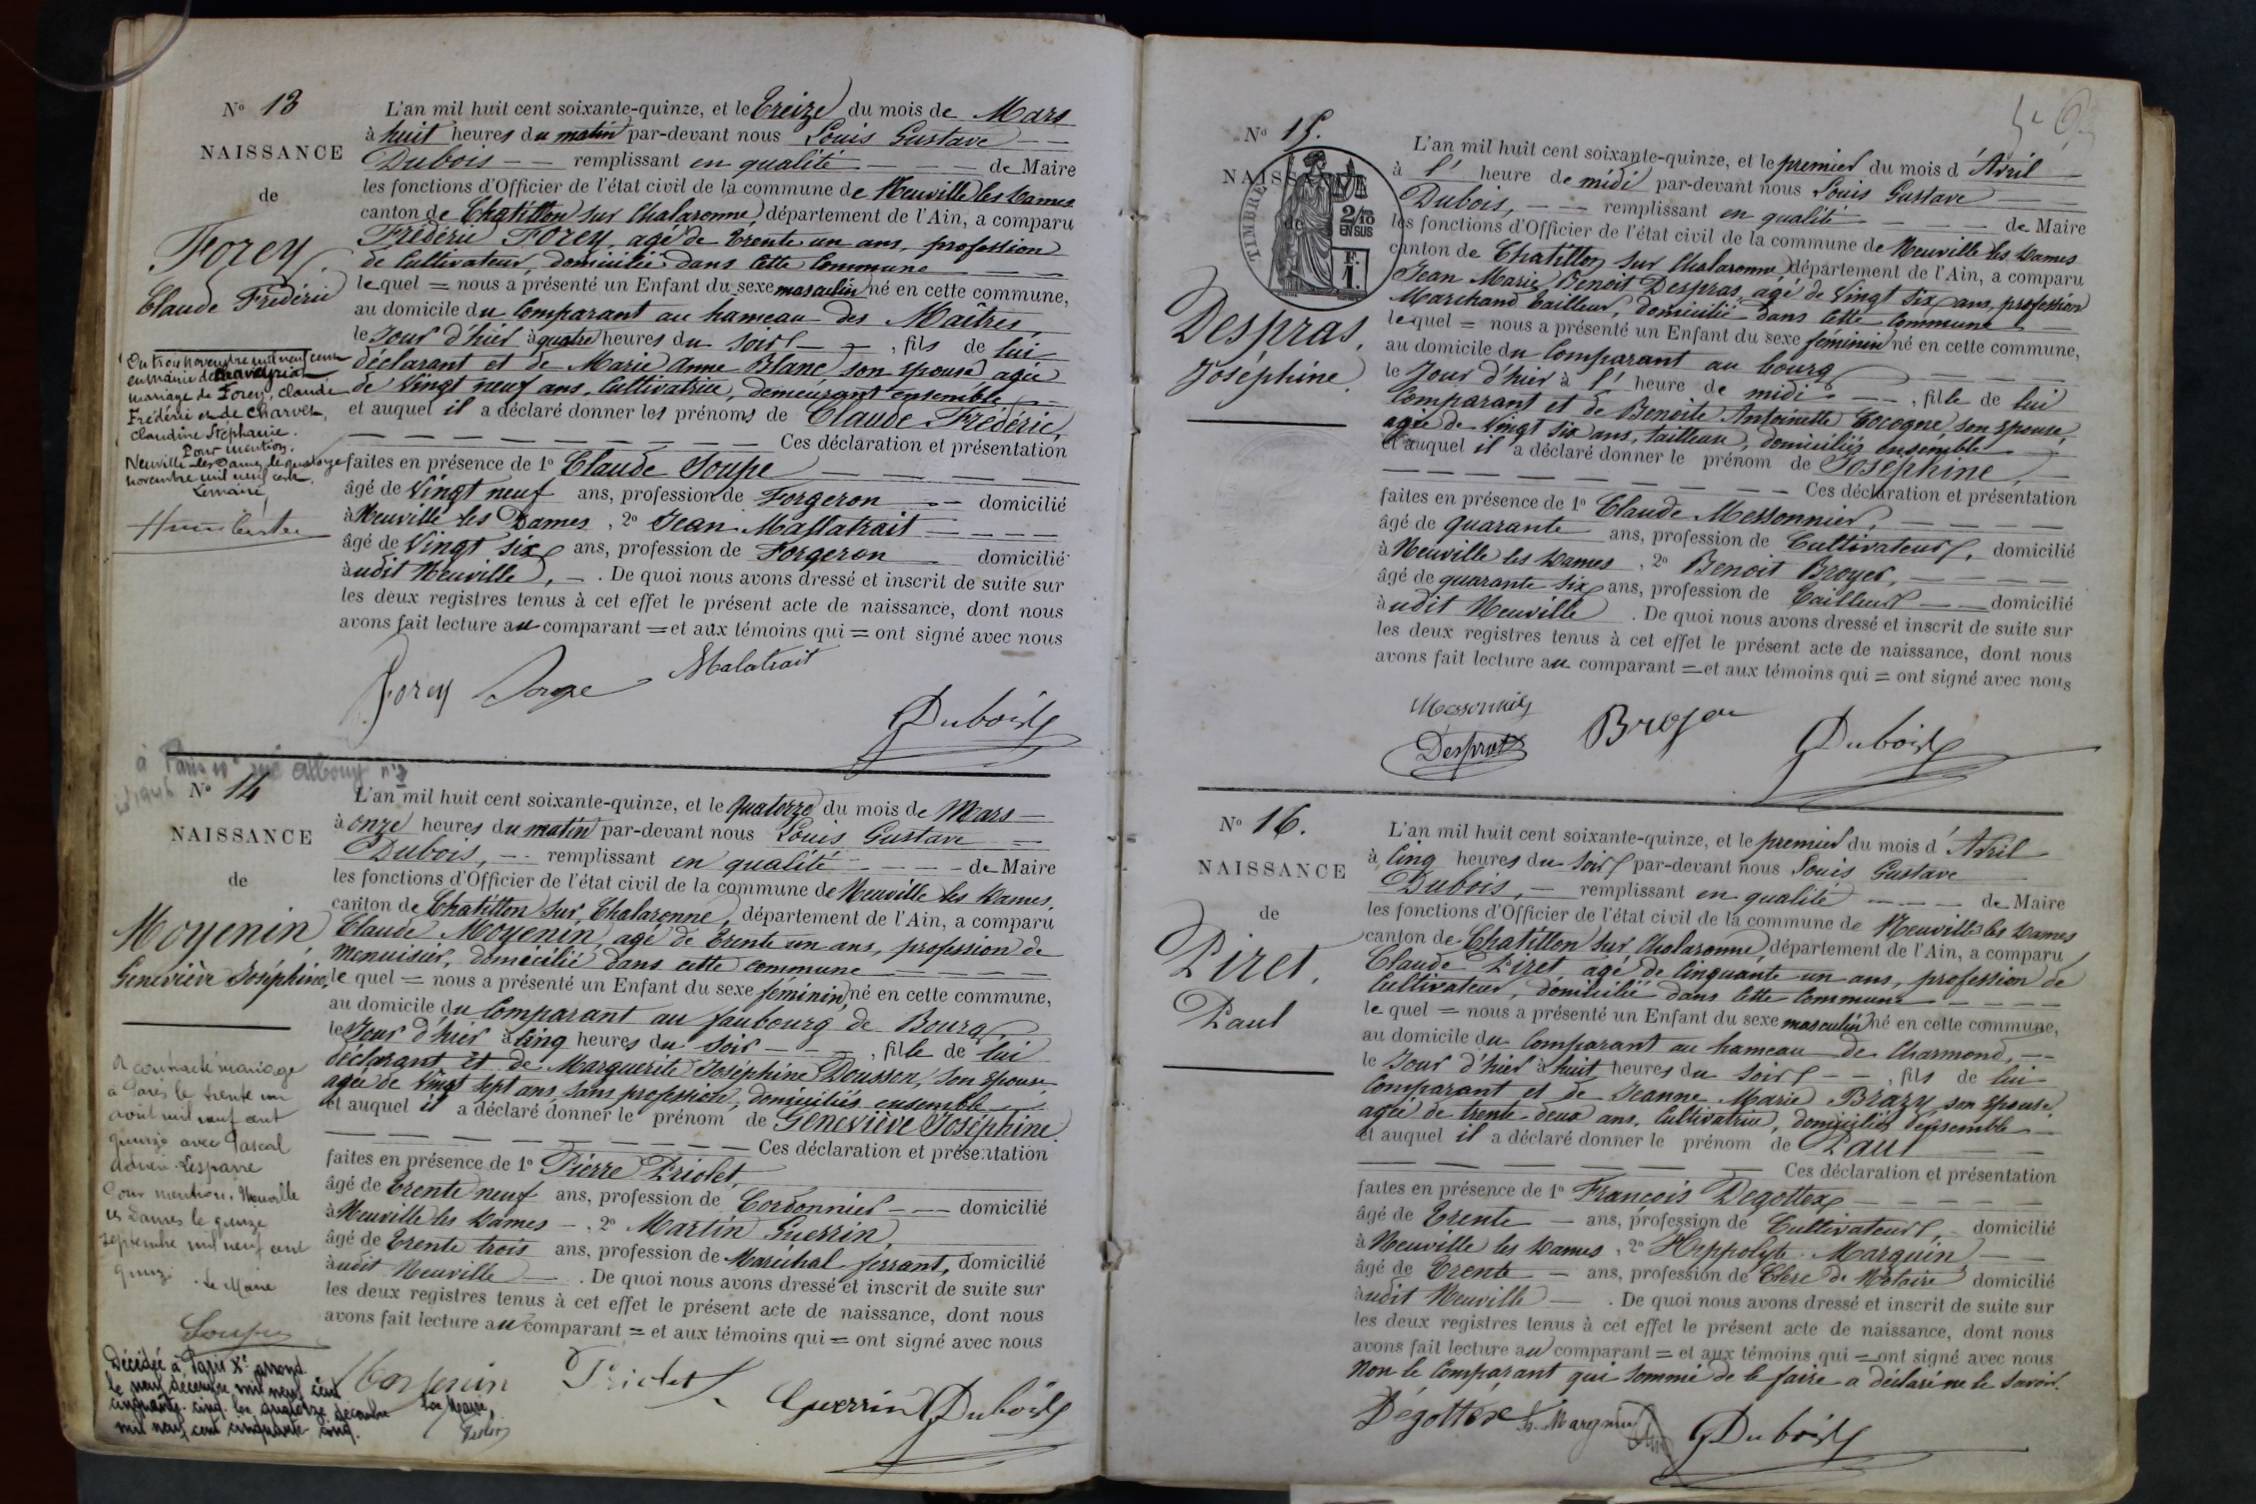 Nº 13
NAISSANCE
de
Forey
Claude Frédéric
L'an mil huit cent soixante-quinze, et le treize du mois de Mars
à huit heures du matin par-devant nous Louis Gustave
Dubois remplissant en qualité de Maire
les fonctions d'Officier de l'état civil de la commune de Neuville les Dames
canton de Chatillon sur Chalaronne, département de l'Ain, a comparu
Frédéric Forey, agé de trente un ans, profession
de Cultivateur, domicilié dans cette Commune
lequel = nous a présenté un Enfant du sexe masculin né en cette commune,
au domicile du Comparant au hameau des Maîtres,
le Jour d'hier à quatre heures du soir, fils de lui
déclarant et de Marie Anne Blanc son épouse agée
de vingt neuf ans, Cultivatrice, demeurant ensemble
et auquel il a déclaré donner les prénoms de Claude Frédéric,
Ces déclaration et présentation
faites en présence de 1º Claude Soupe
âgé de vingt neuf ans, profession de Forgeron domicilié
à Neuville les Dames, 2º Jean Mallatrait
âgé de vingt six ans, profession de Forgeron domicilié
àudit Neuville, . De quoi nous avons dressé et inscrit de suite sur
les deux registres tenus à cet effet le présent acte de naissance, dont nous
avons fait lecture au comparant = et aux témoins qui = ont signé avec nous
Forey Soupe Malatrait
Dubois
Du trois novembre mil neuf cent
en mairie de
mariage de Forey, Claude
Frédéric et de Charvet,
Claudine Stéphanie.
Pour mention.
Neuville-les-Dames, le quatorze
novembre mil neuf cent
Le maire,
à Paris 10e rue Albouy nº
Nº 14
NAISSANCE
de
Moyenin
Geneviève Joséphine
L'an mil huit cent soixante-quinze, et le quatorze du mois de Mars
à onze heures du matin par-devant nous Louis Gustave
Dubois, remplissant en qualité de Maire
les fonctions d'Officier de l'état civil de la commune de Neuville les Dames,
canton de Chatillon sur Chalaronne, département de l'Ain, a comparu
Claude Moyenin, agé de trente un ans, profession de
menuisier, domicilié dans cette commune
le quel = nous a présenté un Enfant du sexe féminin, né en cette commune,
au domicile du Comparant au faubourg de Bourg
le Jour d'hier à cinq heures du soir, fille de lui
déclarant et de Marguerite Joséphine Dousson, son épouse
agée de vingt sept ans, sans profession, domiciliés ensemble
et auquel il a déclaré donner le prénom de Geneviève Joséphine.
Ces déclaration et présentation
faites en présence de 1º Pierre Priolet,
âgé de trente neuf ans, profession de Cordonnier domicilié
à Neuville les Dames, 2º Martin Guerrin,
âgé de trente trois ans, profession de Maréchal ferrant, domicilié
àudit Neuville . De quoi nous avons dressé et inscrit de suite sur
les deux registres tenus à cet effet le présent acte de naissance, dont nous
avons fait lecture au comparant = et aux témoins qui = ont signé avec nous
Moyenin Priolet Guerrin Dubois
A contracté mariage
à Paris le trente un
août mil neuf cent
quinze avec Pascal
Adrien Lesparre
Pour mention. Neuville
les Dames le quinze
septembre mil neuf cent
quinze
Le Maire
Décédée à Paris Xe arrond.
le neuf décembre mil neuf cent
cinquante-cinq. Le quatorze décembre
mil neuf cent cinquante cinq.
Le Maire,
Nº 15.
NAISS
de
TIMBRE
2/10
EN SUS
F.
1.
Despras,
Joséphine
L'an mil huit cent soixante-quinze, et le premier du mois d'Avril
à l' heure de midi par-devant nous Louis Gustave
Dubois, remplissant en qualité de Maire
les fonctions d'Officier de l'état civil de la commune de Neuville les Dames
canton de Chatillon sur Chalaronne département de l'Ain, a comparu
Jean Marie Benoit Despras, agé de vingt six ans, profession
Marchand tailleur, domicilié dans cette commune
lequel = nous a présenté un Enfant du sexe féminin né en cette commune,
au domicile du Comparant au bourg
le Jour d'hier à l' heure de midi, fille de lui
Comparant et de Benoite Antoinette Cocogne son épouse,
agée de vingt six ans, tailleuse, domiciliés ensemble
et auquel il a déclaré donner le prénom de Joséphine,
Ces déclaration et présentation
faites en présence de 1º Claude Messonnier,
âgé de quarante ans, profession de Cultivateur, domicilié
à Neuville les Dames, 2º Benoit Broyer,
âgé de quarante six ans, profession de tailleur domicilié
àudit Neuville . De quoi nous avons dressé et inscrit de suite sur
les deux registres tenus à cet effet le présent acte de naissance, dont nous
avons fait lecture au comparant = et aux témoins qui = ont signé avec nous
Messonnier
Despras Broyer Dubois
Nº 16.
NAISSANCE
de
Piret,
Paul
L'an mil huit cent soixante-quinze, et le premier du mois d'Avril
à cinq heures du soir par-devant nous Louis Gustave
Dubois, remplissant en qualité de Maire
les fonctions d'Officier de l'état civil de la commune de Neuville les Dames
canton de Chatillon sur Chalaronne, département de l'Ain, a comparu
Claude Piret, agé de cinquante un ans, profession de
Cultivateur, domicilié dans cette commune
le quel = nous a présenté un Enfant du sexe masculin né en cette commune,
au domicile du Comparant au hameau de Charmond,
le Jour d'hier à huit heures du soir, fils de lui
Comparant et de Jeanne Marie Brazy son épouse,
agée de trente-deux ans, Cultivatrice, domiciliés ensemble
et auquel il a déclaré donner le prénom de Paul
Ces déclaration et présentation
faites en présence de 1º François Dégottex
âgé de trente ans, profession de Cultivateur, domicilié
à Neuville les Dames, 2º Hyppolyte Marguin,
âgé de trente ans, profession de Clerc de Notaire domicilié
àudit Neuville . De quoi nous avons dressé et inscrit de suite sur
les deux registres tenus à cet effet le présent acte de naissance, dont nous
avons fait lecture au comparant = et aux témoins qui = ont signé avec nous
non le Comparant qui sommé de le faire a déclaré ne le savoir.
Dégottex h. Marguin Dubois